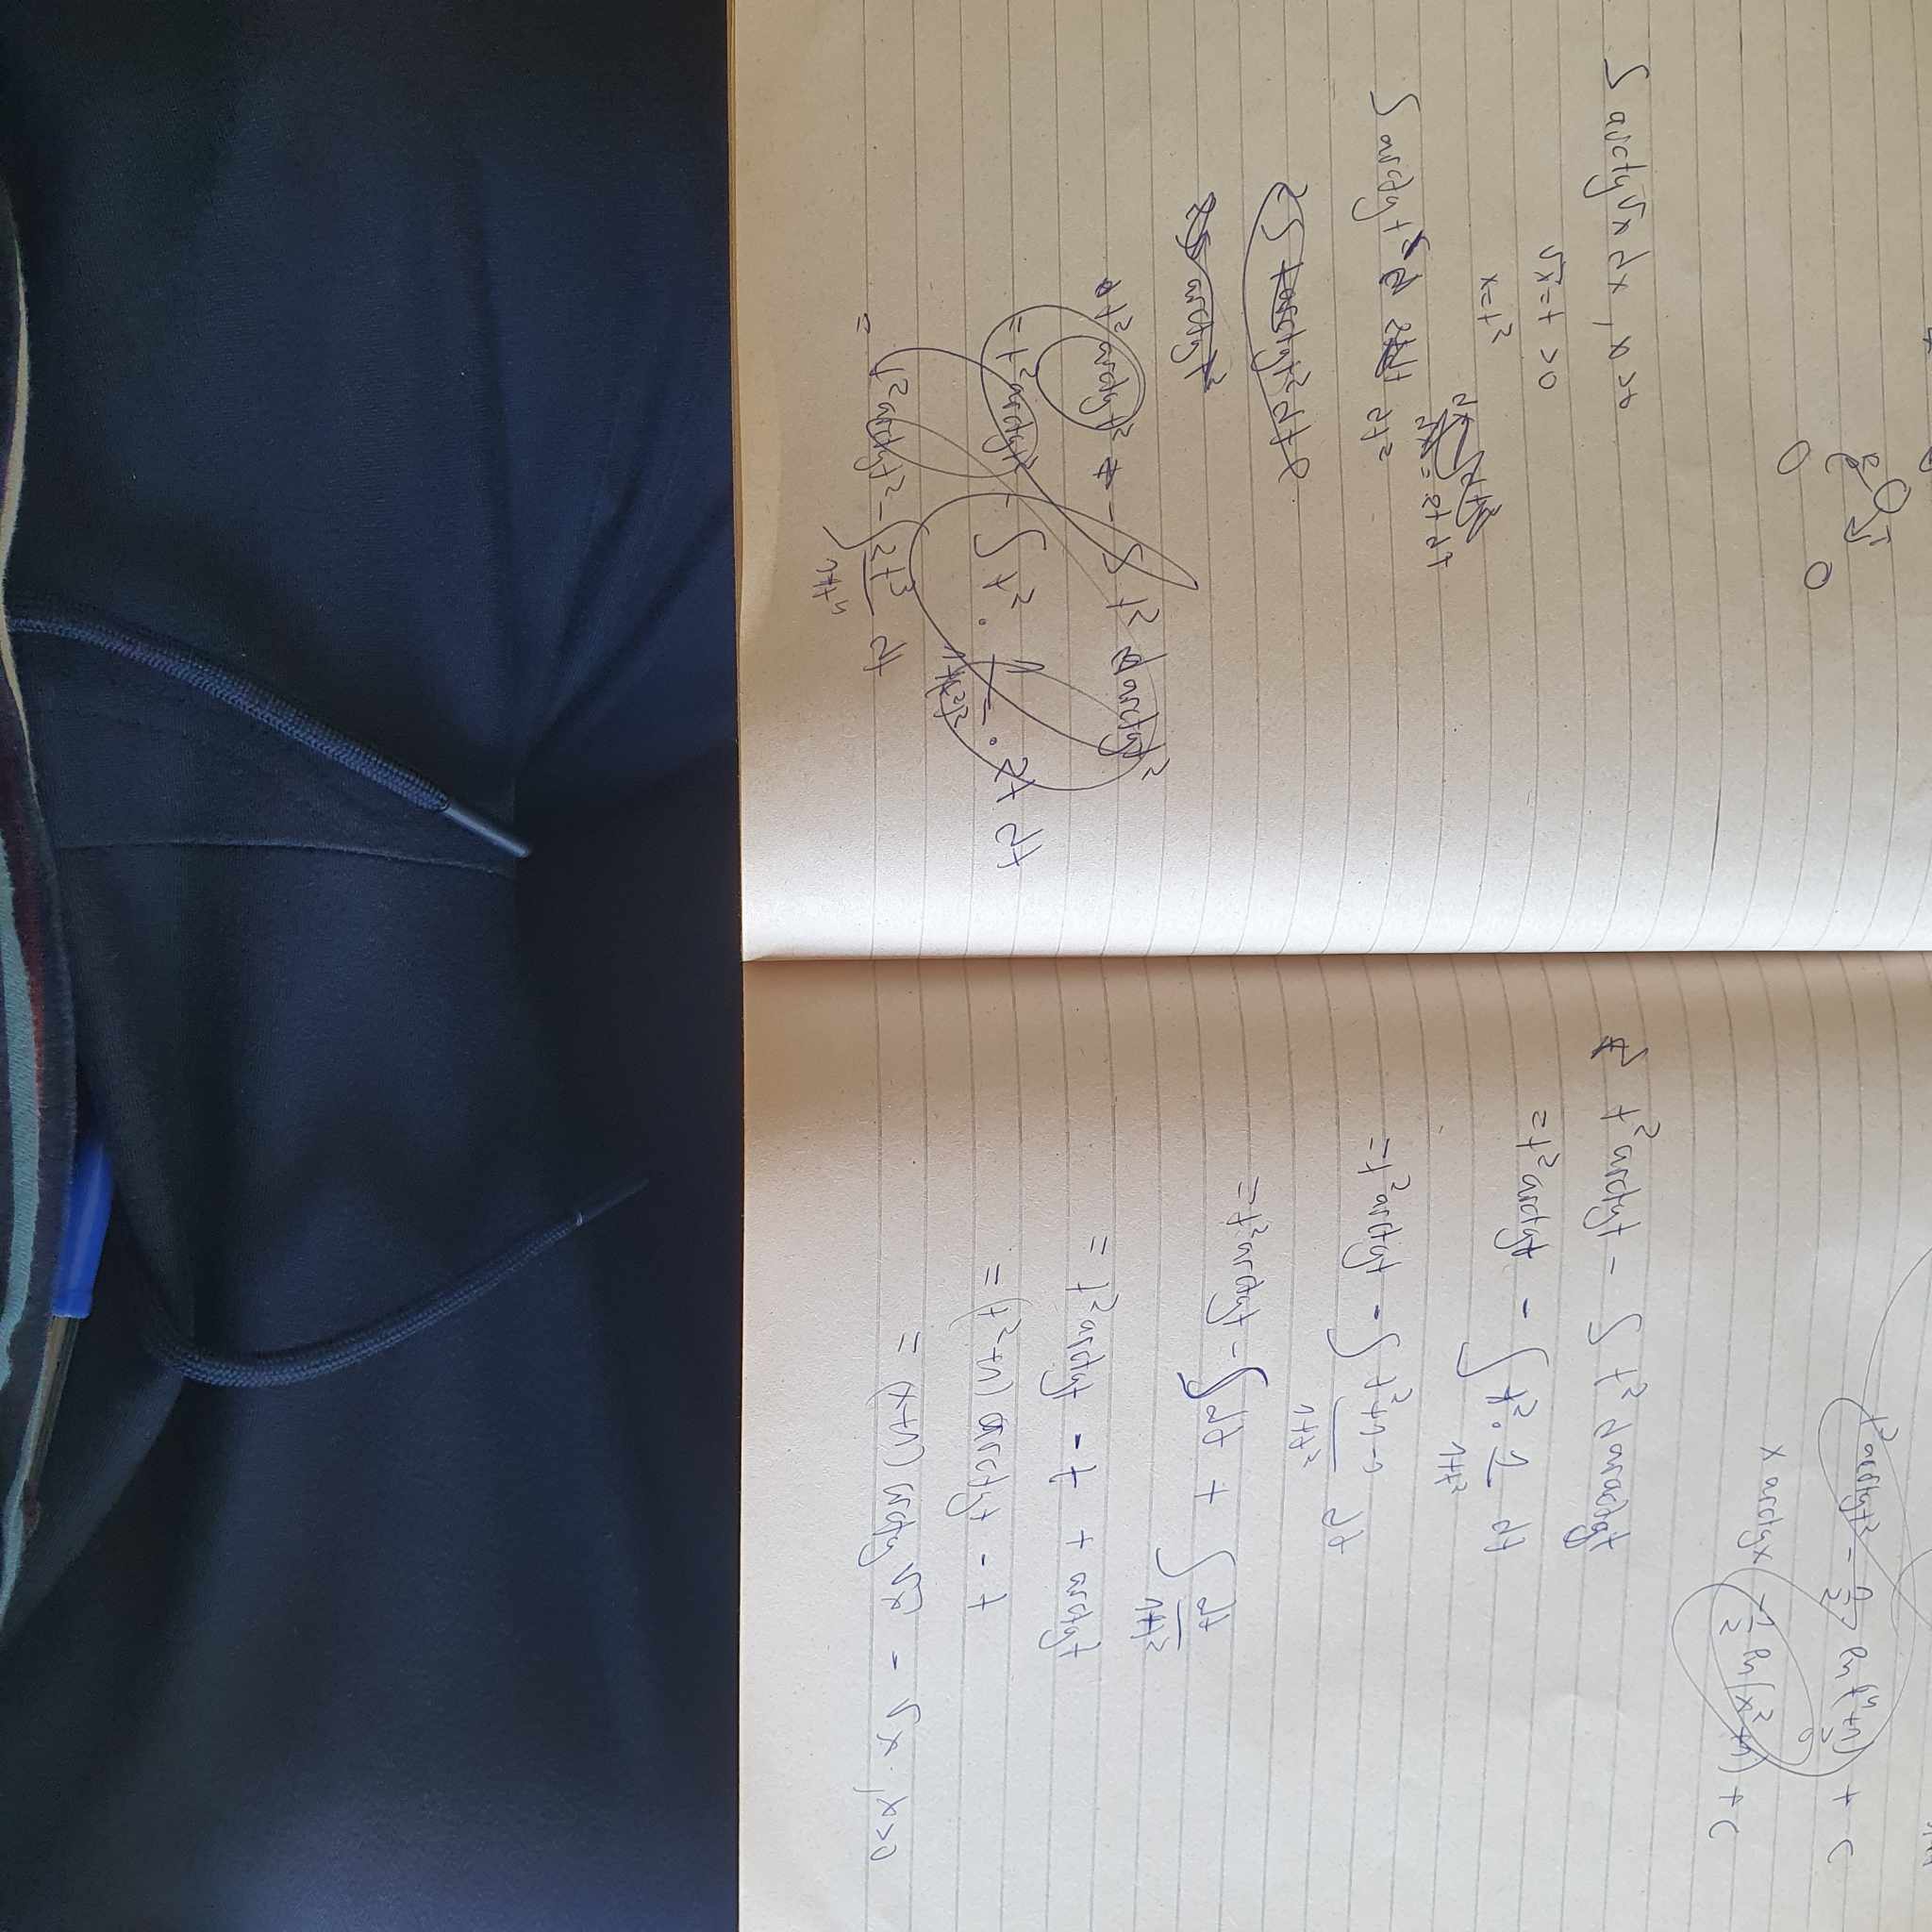 ∫ arctg√x dx , x>0
√x = t >0
x=t²
dx = 2t dt
∫ arctgt dt²
2∫ t arctgt² dt
2∫ arctgt²
t² arctgt² - ∫ t² d arctgt²
= t² arctgt² - ∫ t² · 1/(1+(t²)²) · 2t dt
= t² arctgt² - ∫ 2t³/(1+t⁴) dt
t² arctgt² - 1/2 ln(t⁴+1) + C
x arctgx - 1/2 ln(x²+1) + C
t² arctgt - ∫ t² d aractgt
= t² arctgt - ∫ t² · 1/(1+t²) dt
= t² arctgt - ∫ (t²+1-1)/(1+t²) dt
= t² arctgt - ∫ dt + ∫ dt/(1+t²)
= t² arctgt - t + arctgt
= (t²+1) arctgt - t
= (x+1) arctg √x - √x , x>0